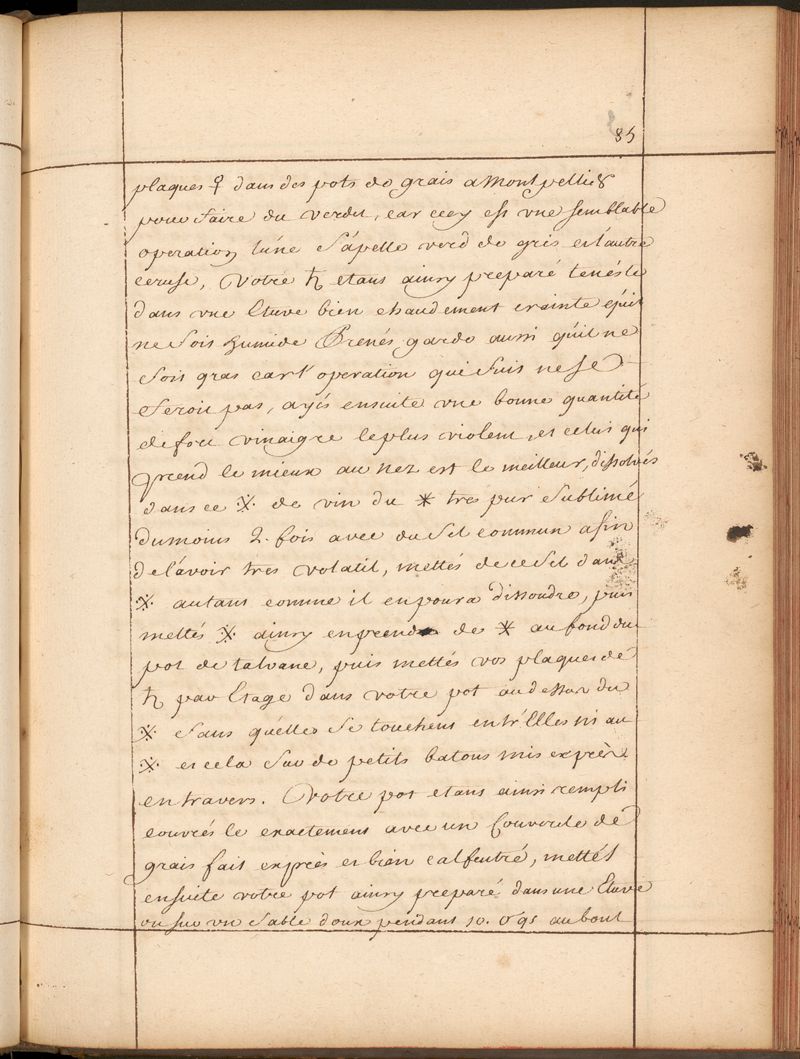 85
plaques ♀ dans des pots de grais a Montpellier
pour faire du verdet, car cecy est vne semblable
operation lúne s'ápelle verd de gris et l'autre
ceruse, Votre ♄ etans ainsy preparé tenésle
dans vne Etuve bien chaudement crainte qúil
ne Soit humide Prenés garde aussi qúil ne
Soit gras car l'operation qui Suit ne Se
Seroit pas, ayés ensuite vne bonne quantité
de fort vinaigre le plus violent, et celuy qui
prend le mieux au nez est le meilleur, dissolvés
dans ce ⁜ de vin du ✶ tres pur Sublimé
dumoins 2. fois avec du Sel commun afin
de l'ávoir tres volatil, mettés de ce Sel dans
⁜ autant comme il en poura dissoudre, puis
mettés ⁜ ainsy de ✶ au fond du
pot de talvane, puis mettés vos plaques de
♄ par Etage dans votre pot au dessus du
⁜ Sans qúelles Se touchent entr'Elles ni au
⁜ et cela Sur de petits batons mis exprès
en travers. Votre pot etant ainsi rempli
couvrés le exactement avec un Couvercle de
grais fait exprès et bien calfeutré, mettés
ensuite votre pot ainsy preparé dans une Etuve
ou sur vn Sable doux pendant 10. au bout